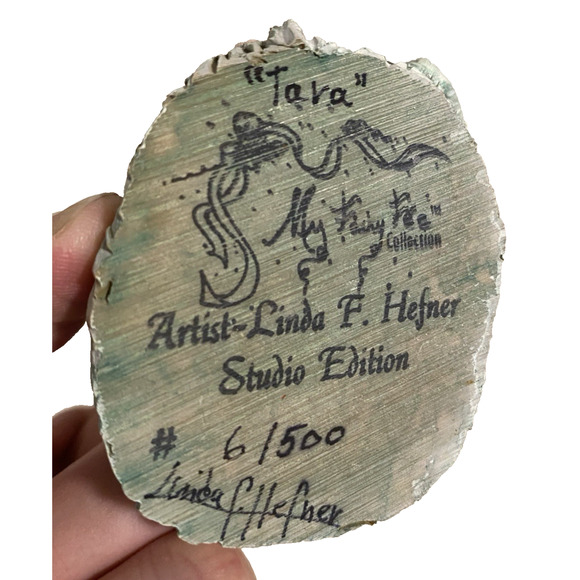 "Tara"
My Fairy Fae™
Collection
Artist-Linda F. Hefner
Studio Edition
# 6/500
Linda F. Hefner